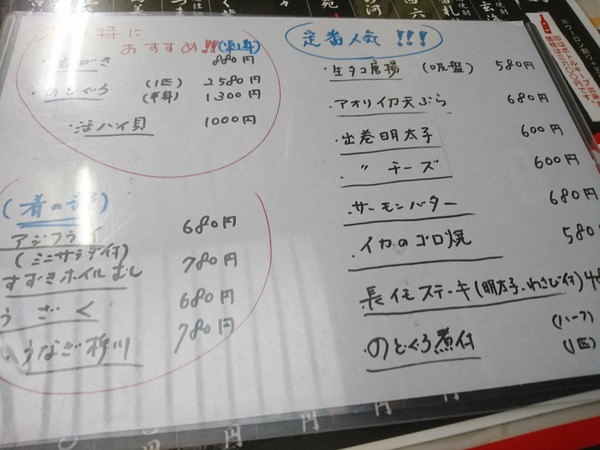 特に
おすすめ!!
880円
のどぐろ (1匹) 2580円
(半身) 1300円
活バイ貝 1000円
(肴の部)
アジフライ 680円
(ミニサラダ付)
すずきホイルむし 780円
うざく 680円
うなぎ柳川 780円
定番人気!!!
生タコ唐揚 (吸盤) 580円
アオリイカ天ぷら 680円
出巻明太子 600円
〃 チーズ 600円
サーモンバター 680円
イカのゴロ焼 580
長イモステーキ(明太子、わさび付)
のどぐろ煮付 (ハーフ)
(1匹)